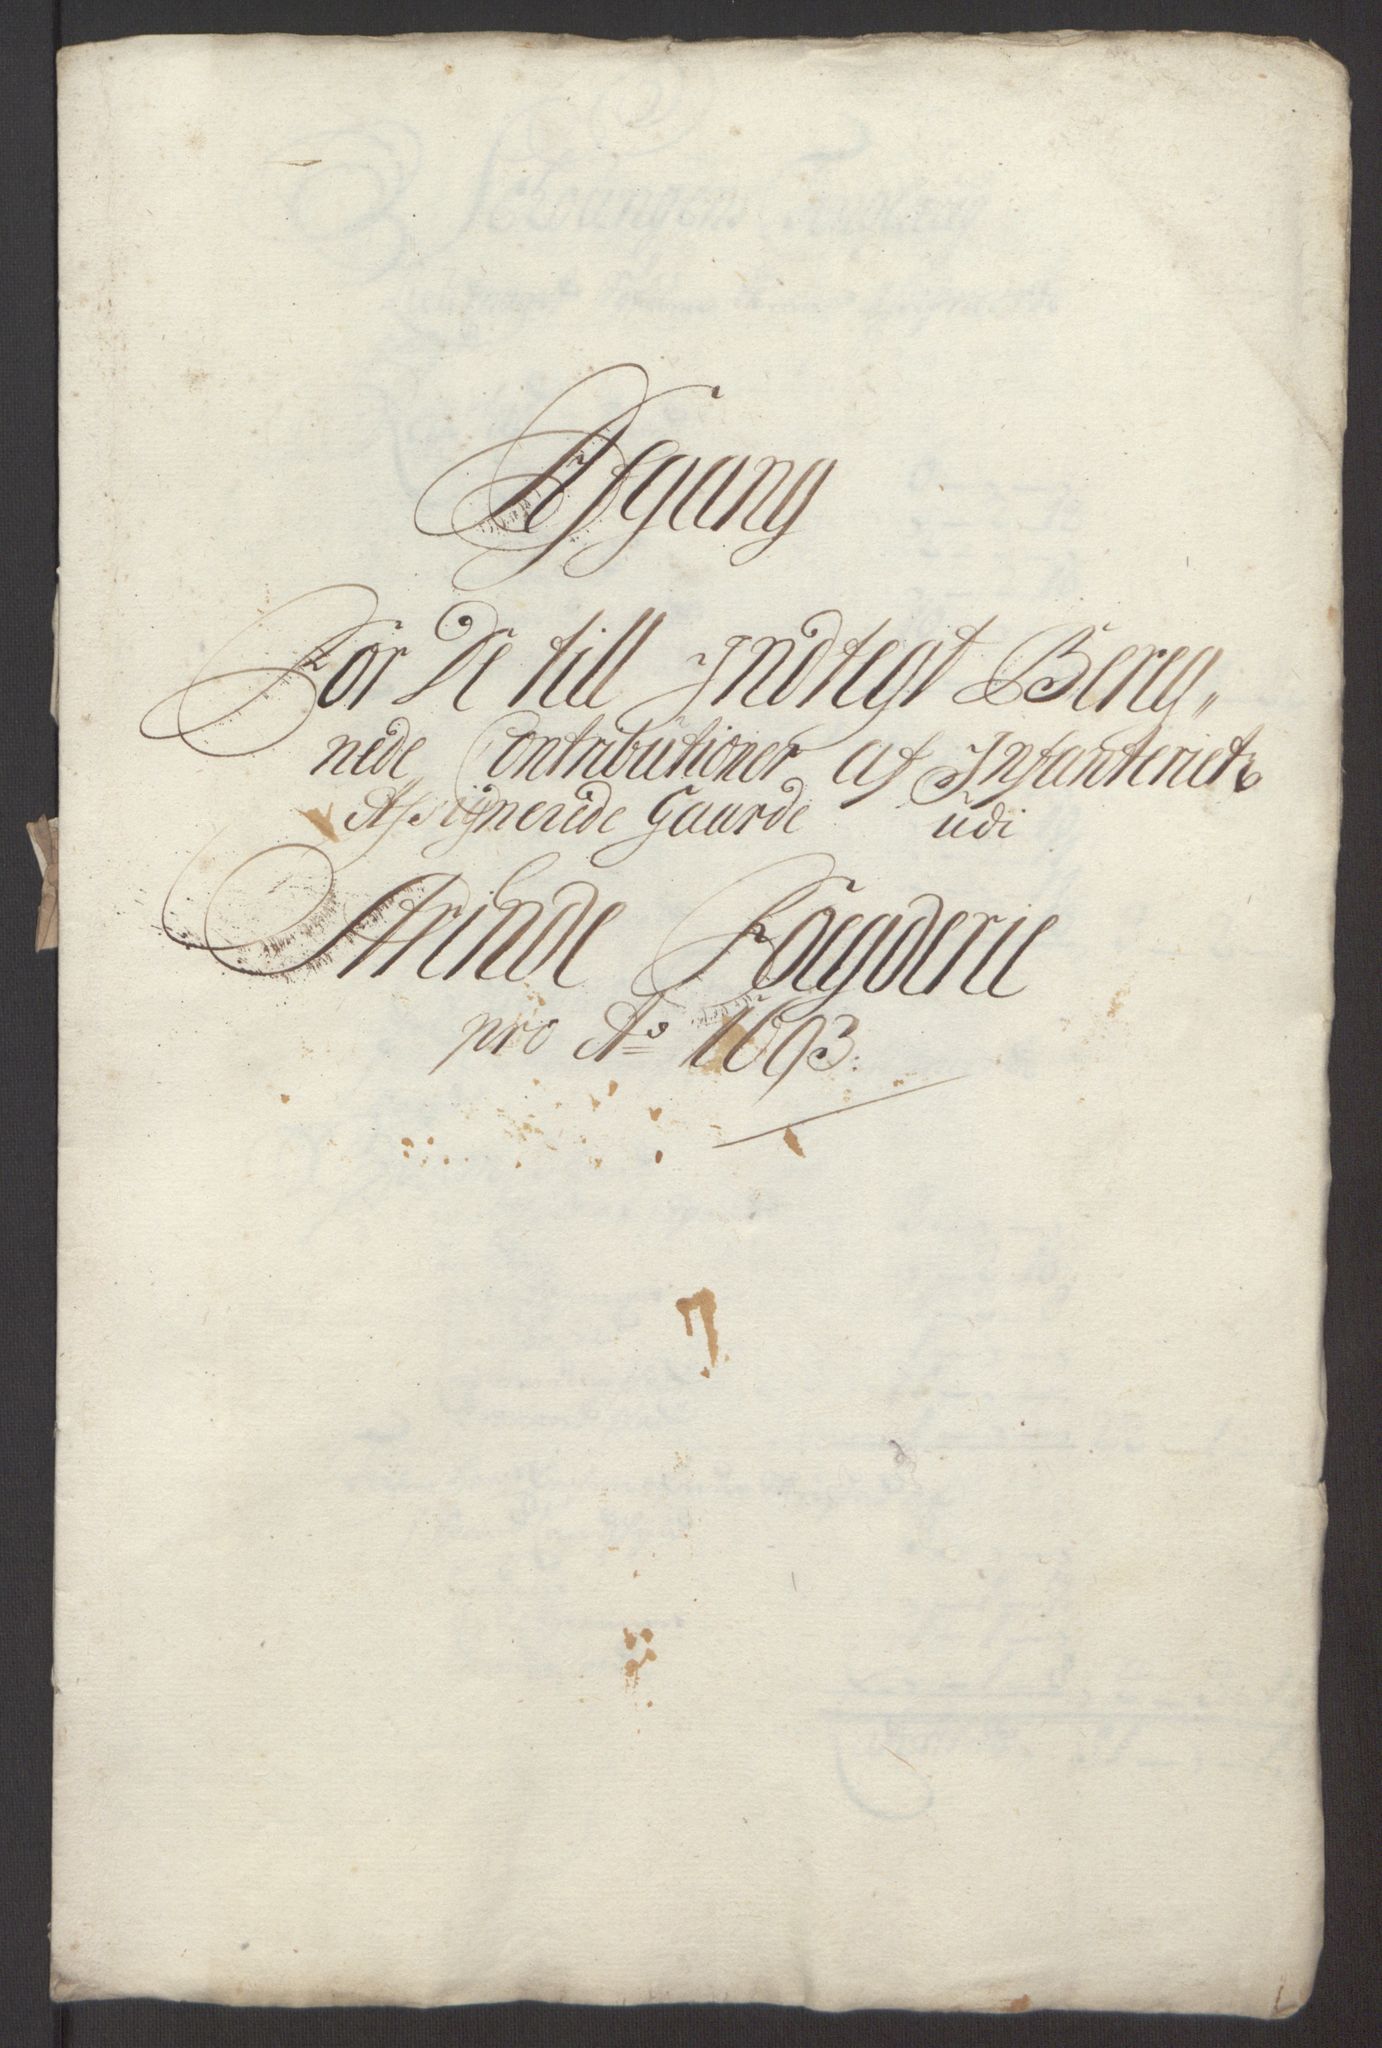 Afgang
For De till Indtegt Bereg„
nede Contributioner af Infanteriets
Assignerede Gaarde udi
Strinde Foegderie
pro Ao 1693.